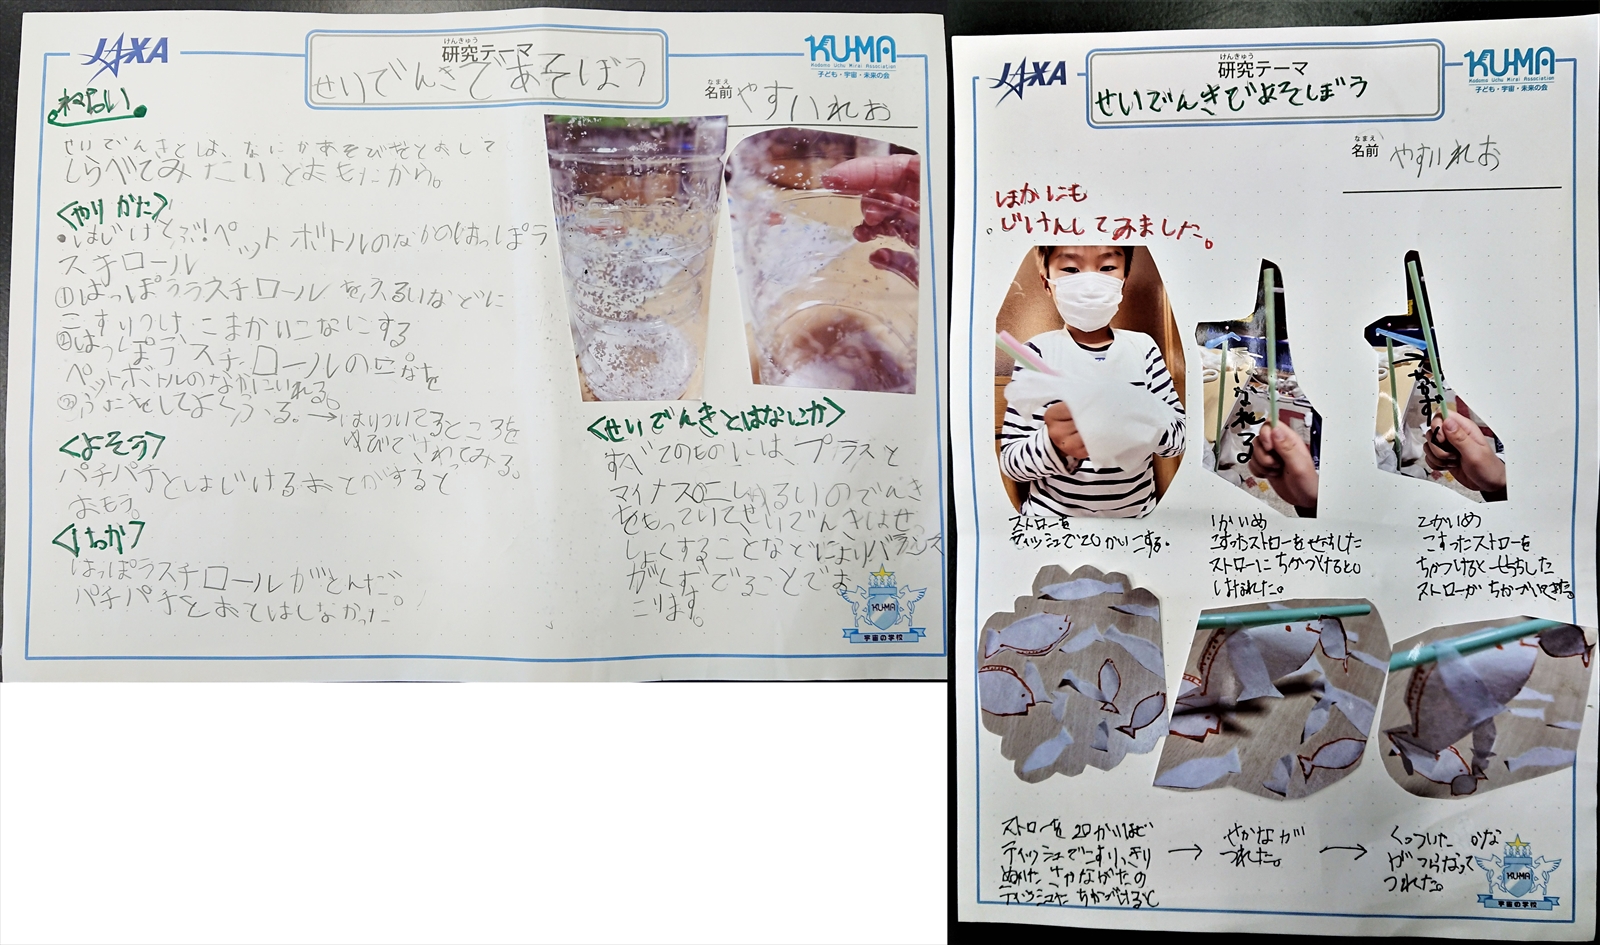 JAXA
けんきゅう
研究テーマ
せいでんきであそぼう
KU-MA
Kodomo Uchu Mirai Association
子ども・宇宙・未来の会
なまえ
名前 やすいれお
ねらい
せいでんきとは、なにかあそびをとおして
しらべてみたいとおもたから。
<やりかた>
・はじけとぶ!ペットボトルのなかのはっぽう
スチロール
①はっぽうスチロールをふるいなどに
こすりつけ、こまかいこなにする
②はっぽうスチロールのこなを
ペットボトルのなかにいれる。
③ふたをしてよくふる。→はりついてるところを
ゆびでさわってみる。
<よそう>
パチパチとはじけるおとがすると
おもう。
<けっか>
はっぽうスチロールがとんだ。
パチパチとおとはしなかった。
<せいでんきとはなにか>
すべてのものには、プラスと
マイナスの二しゅるいのでんき
をもっていてせいでんきはせっ
しょくすることなどによりバランス
がくずれでることでお
こります。
KU-MA
宇宙の学校
JAXA
けんきゅう
研究テーマ
せいでんきであそぼう
KU-MA
Kodomo Uchu Mirai Association
子ども・宇宙・未来の会
なまえ
名前 やすいれお
ほかにも
じけんしてみました。
はなれる
ちかずく
ストローを
ティッシュで20かいこする。
1かいめ
こすったストローをせっちした
ストローにちかづけると。
はなれた。
2かいめ
こすったストローを
ちかつけるとせっちした
ストローがちかかいてきた。
ストローを20かいほど
ティッシュでこすり、きり
ぬいた さかながたの
ティッシュに ちかづけると
→ さかなが
つれた。
→ くっついた さかな
がつらなって
つれた。
KU-MA
宇宙の学校